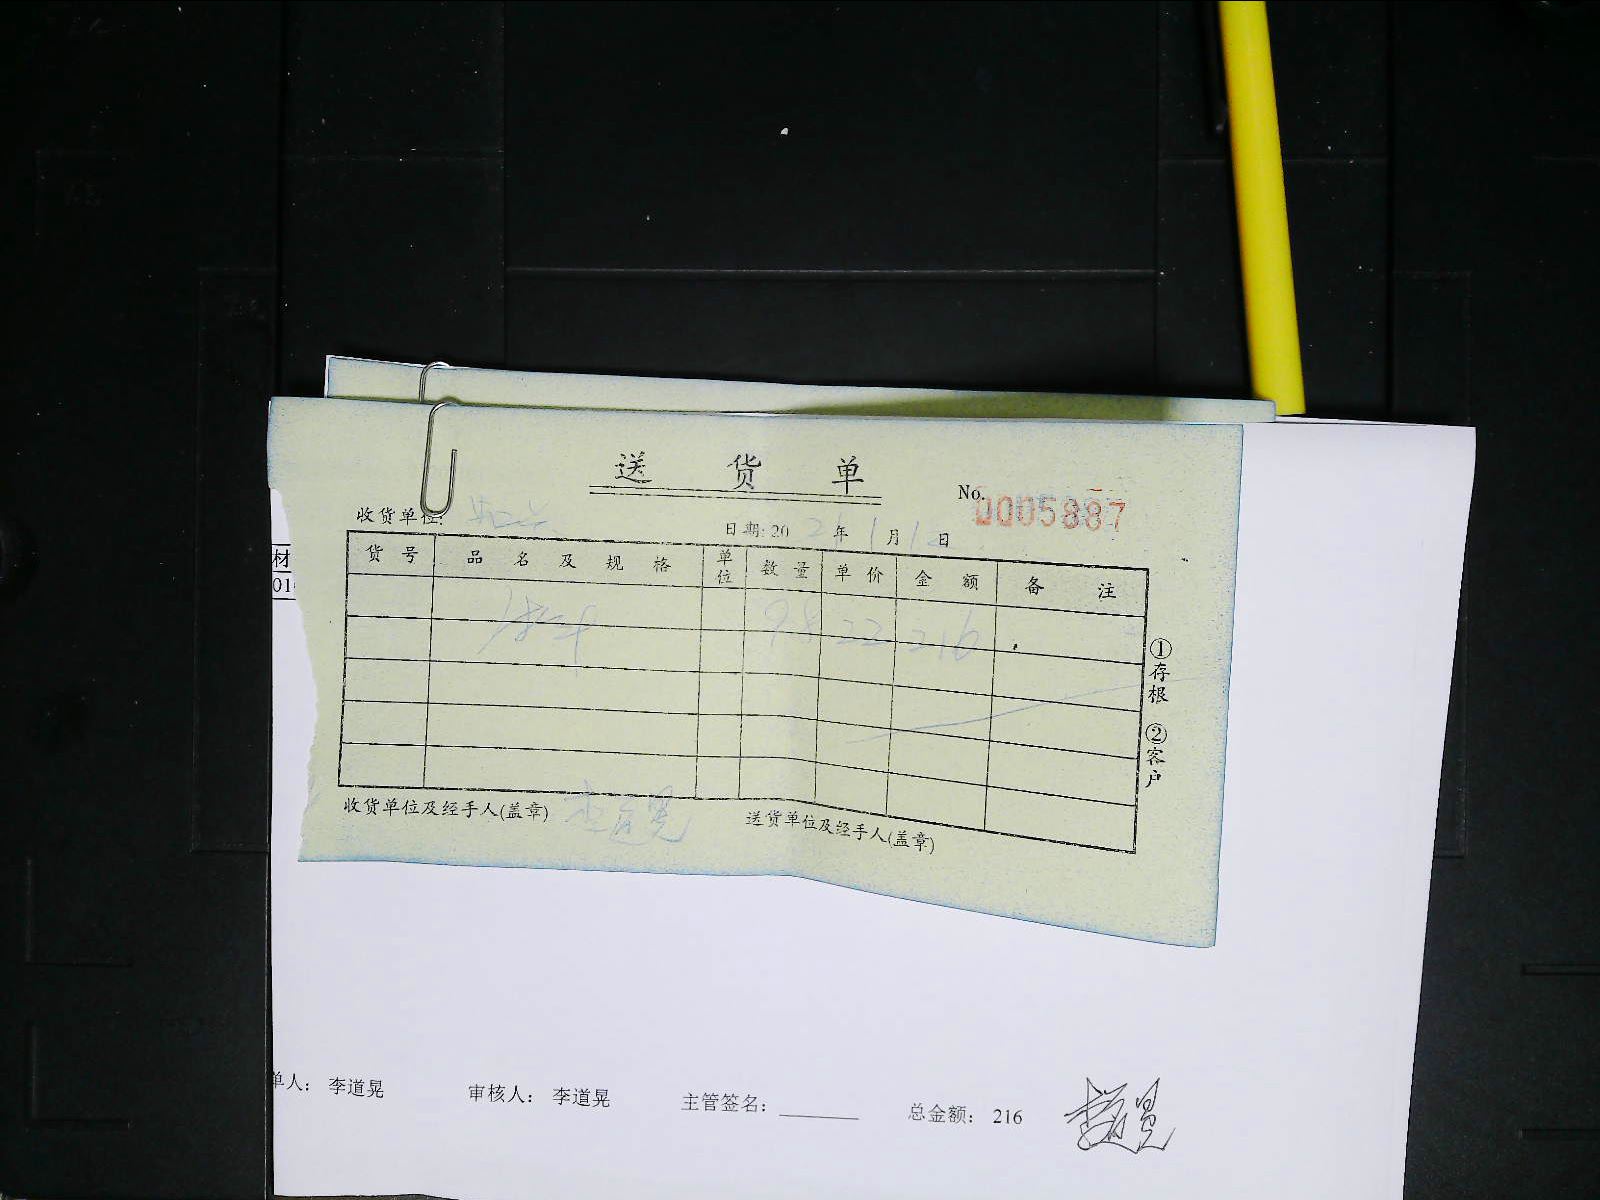 送货单
No. 0005887
收货单位:
日期: 20 21年1月1日
材
货号 品名及规格 单位 数量 单价 金额 备注
01
9.8 22 216
①存根 ②客户
收货单位及经手人(盖章) 李道晃 送货单位及经手人(盖章)
单人: 李道晃 审核人: 李道晃 主管签名: 总金额: 216 李道晃